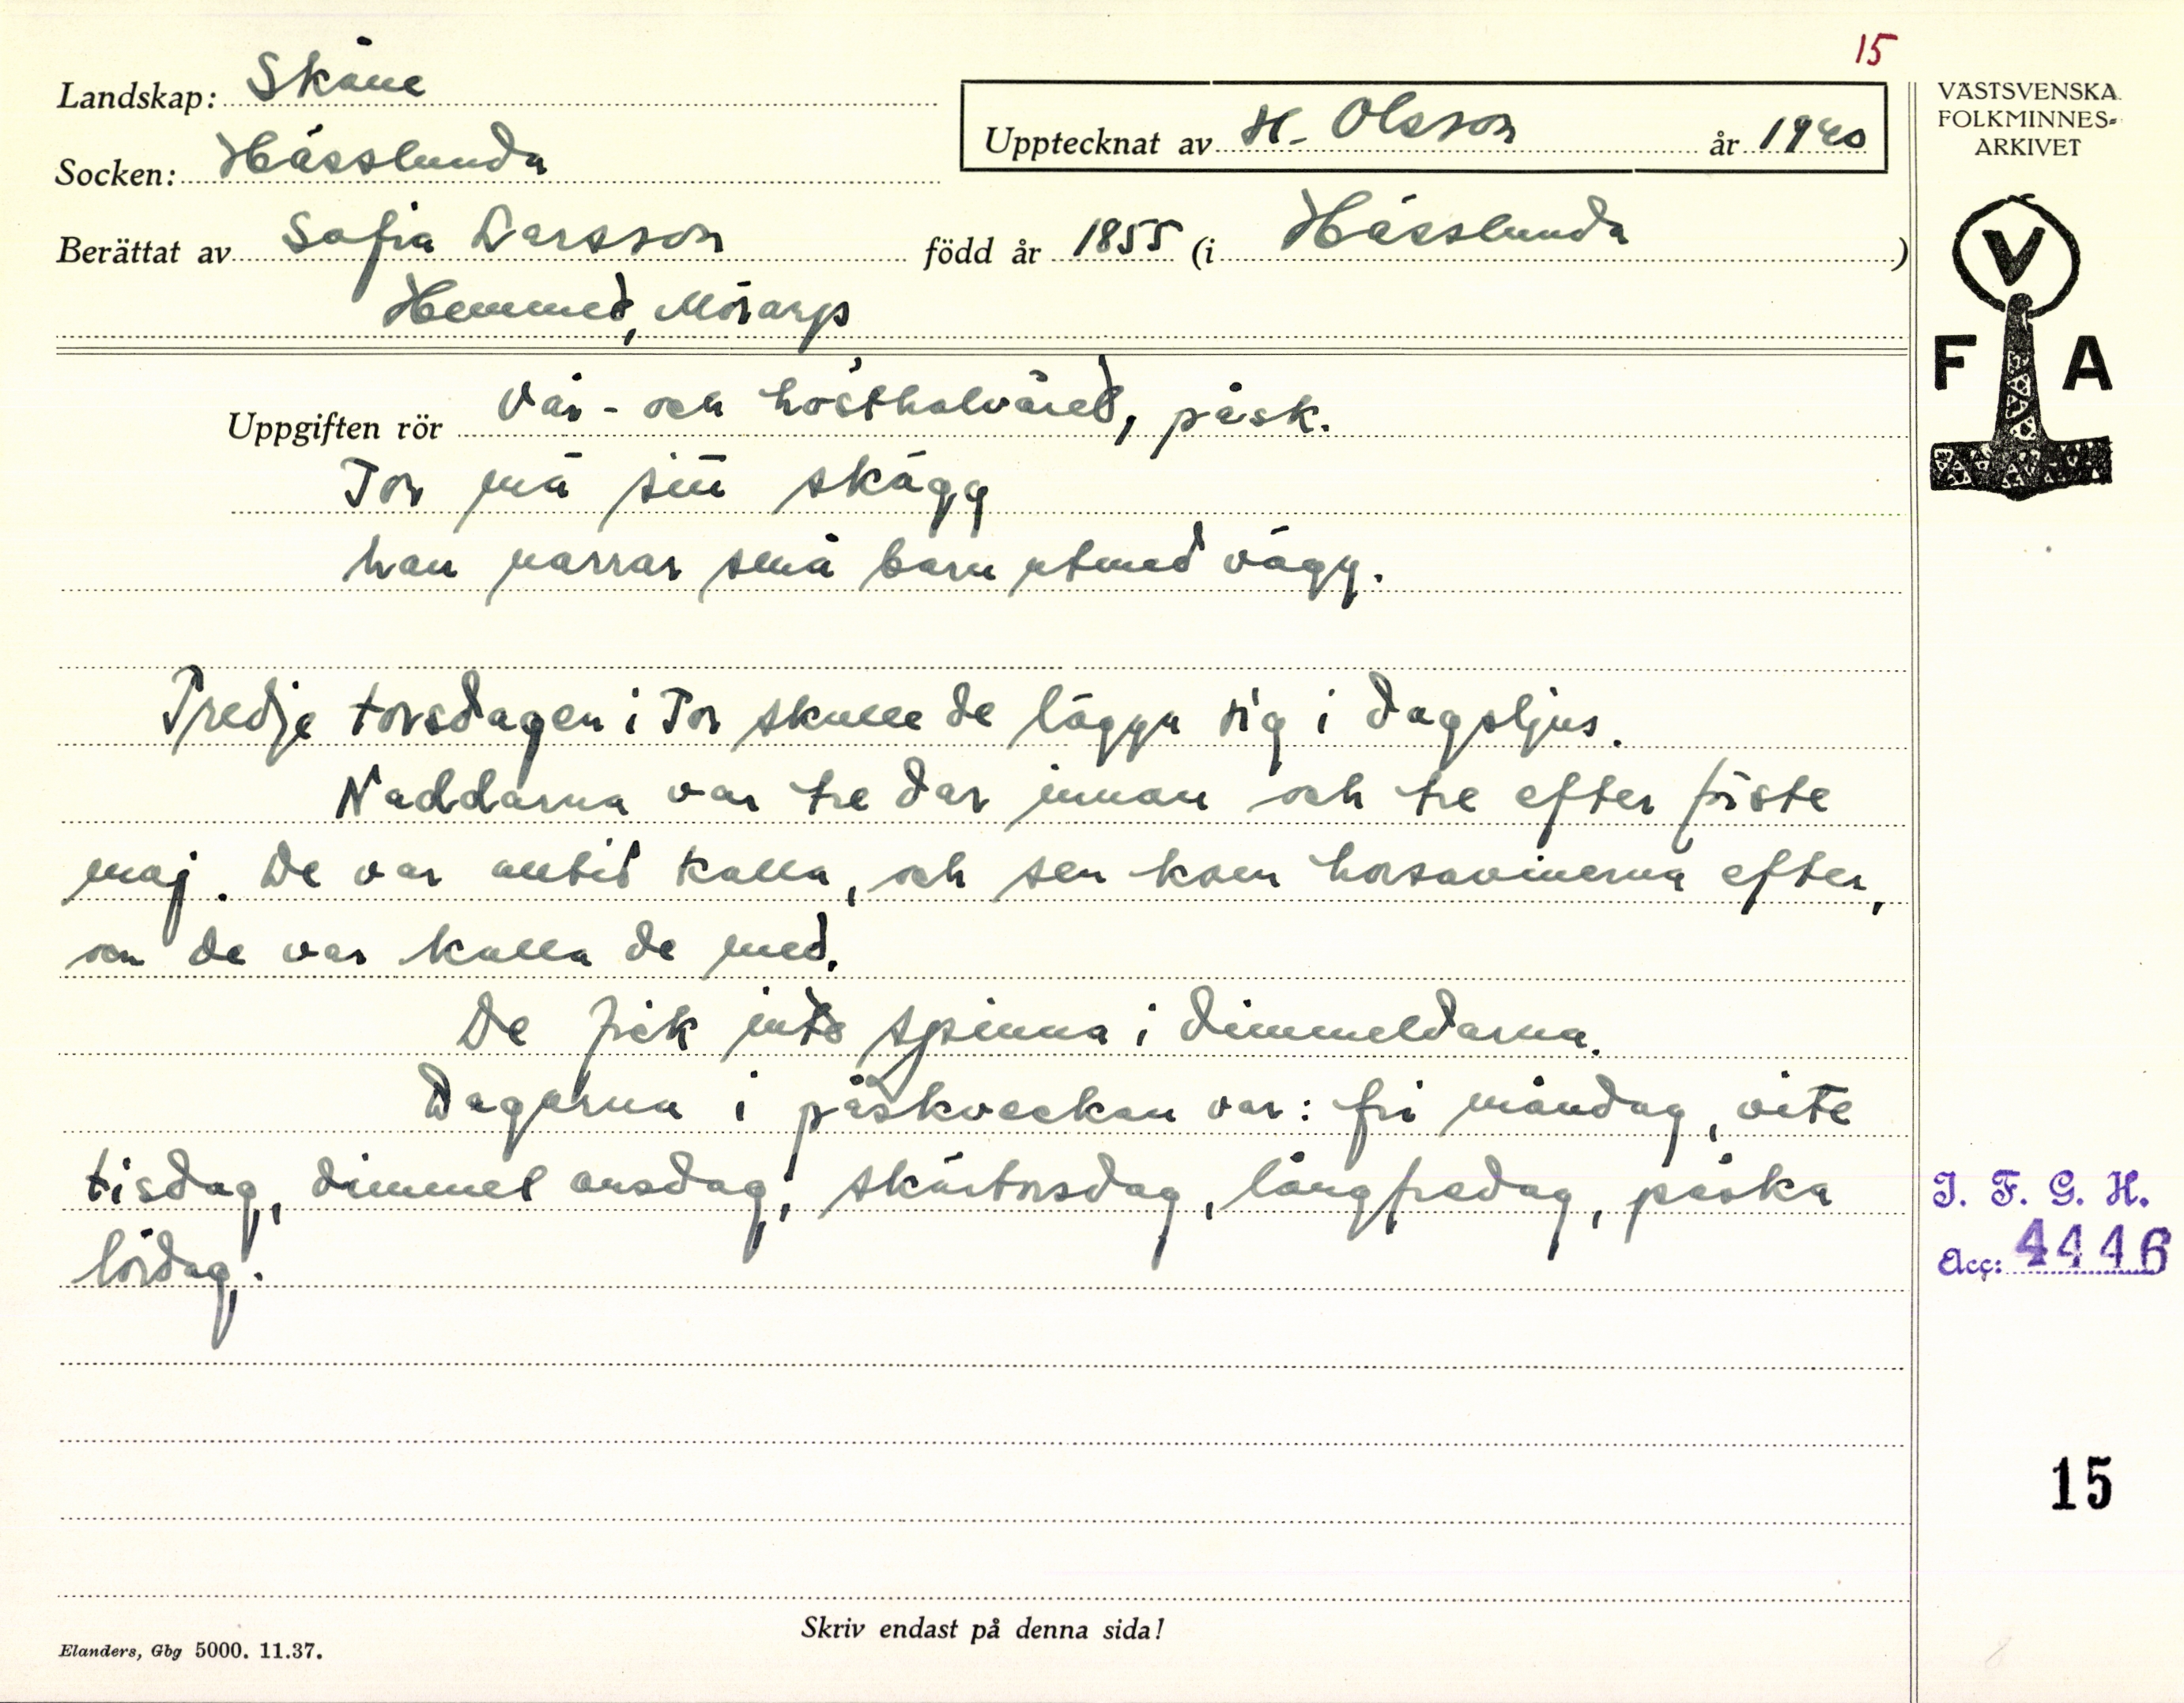 15
Landskap: Skåne
Upptecknat av H. Olsson år 1940
Socken: Hässlunda
Berättat av Sofia Larsson född år 1855 (i Hässlunda)
Hemmet, Mörarp
Uppgiften rör Vår- och hösthalvåret, påsk.
Tor mä sitt skägg
han narrar små barn utmed vägg.
Tredje torsdagen i Tor skulle de lägga sig i dagsljus.
Naddarna var tre dar innan och tre efter förste
maj. De var alltid kalla, och sen kom horsavinerna efter,
som de var kalla de med.
De fick inte spinna i dimmeldarna.
Dagarna i påskveckan var: fri måndag, vite
tisdag, dimmel onsdag, skärtorsdag, långfredag, påska
lördag.
Skriv endast på denna sida!
Elanders, Gbg 5000. 11.37.
VÄSTSVENSKA
FOLKMINNES-
ARKIVET
V
F A
I. F. G. H.
Acc: 4446
15